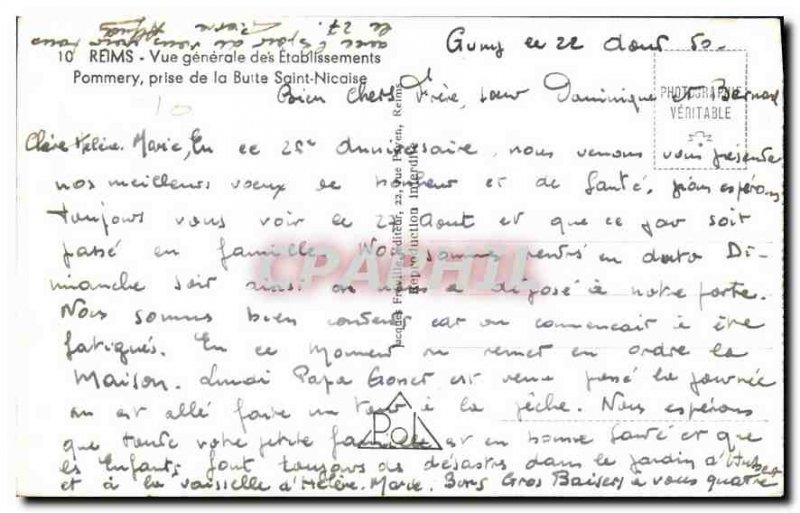 10 REIMS - Vue générale des Établissements
Pommery, prise de la Butte Saint-Nicaise
le 22 Aout 50.
PHOTOGRAPHIE
VÉRITABLE
Bien Chers Frère, soeur Dominique et Bernard
Marie, En ce 25e Anniversaire, nous venons vous présenter
nos meilleurs voeux de bonheur et de Santé, espérons
toujours vous voir le 27 Aout et que ce jour soit
passé en famille. Nous sommes rentrés en auto Di-
manche soir ainsi on nous a déposé à notre porte.
Nous sommes bien contents car on commencait à être
fatigués. En ce moment on remet en ordre la
Maison. Lundi Papa Gonet est venu passé la journée
on est allé faire un tour à la pêche. Nous espérons
que toute votre petite famille est en bonne Santé et que
les Enfants font toujours des désastres dans le jardin d'Hubert
et à la vaisselle d'Hélène-Marie. Bons Gros Baisers à vous quatre
avec l'espoir de vous voir tous
le 27.
Pierre
Jacques Fréville, éditeur, 22, rue Payen, Reims
Reproduction interdite
CPARAMA
Pol